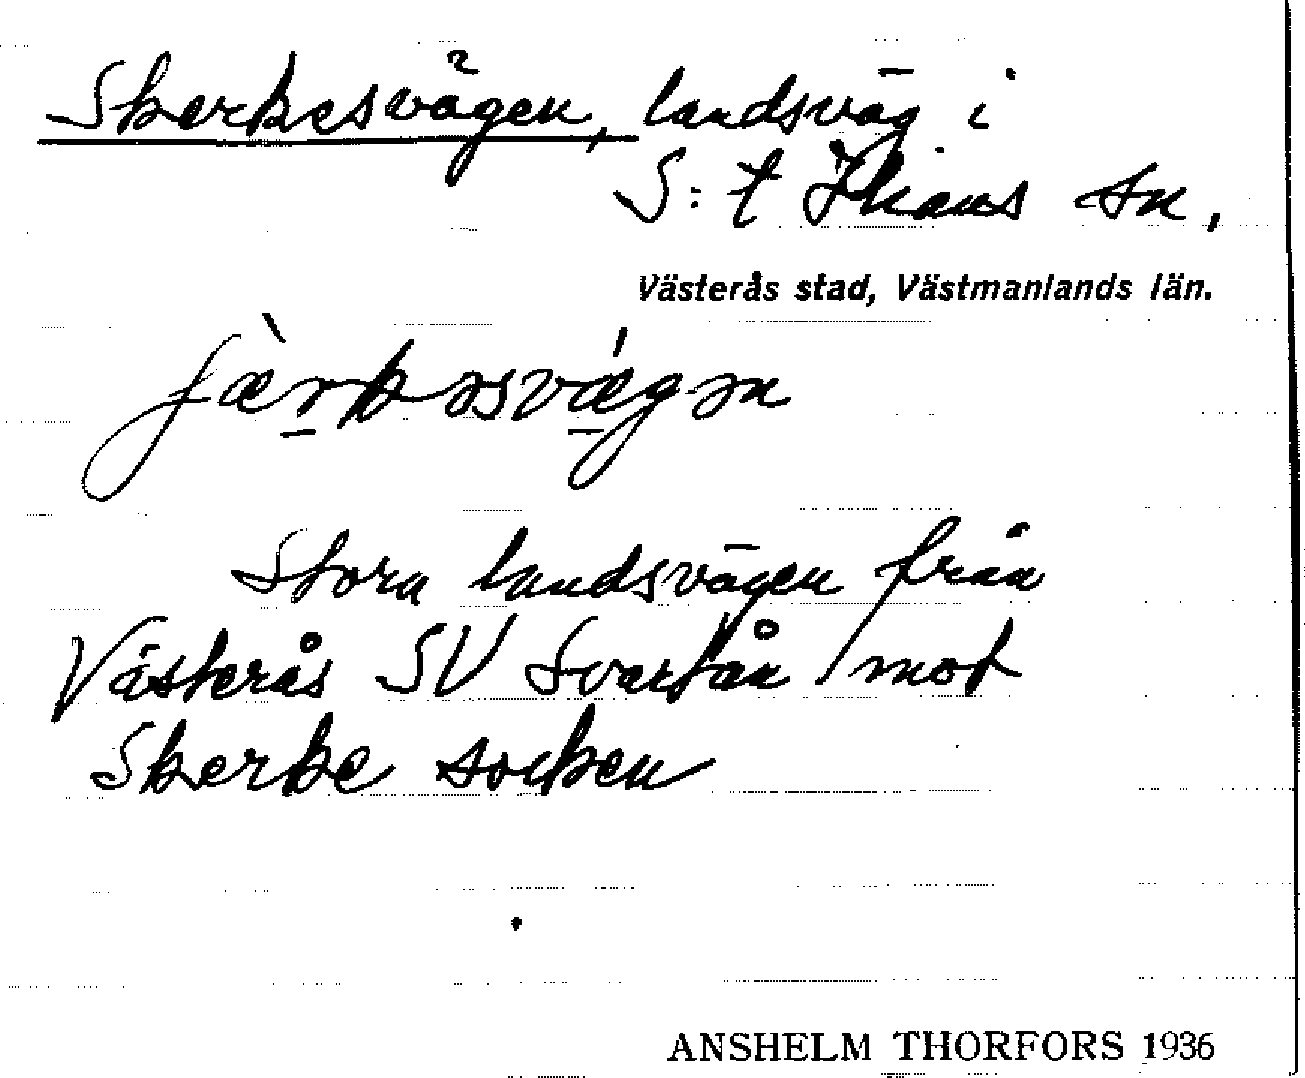 Skerkesvägen, landsväg i
S:t Ilians sn,
Västerås stad, Västmanlands län.
Stora landsvägen från
Västerås SV Svartån mot
Skerke socken
ANSHELM THORFORS 1936